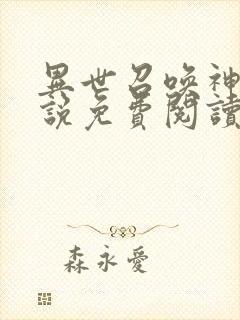 異世召喚神
說免費閱讀
森永愛